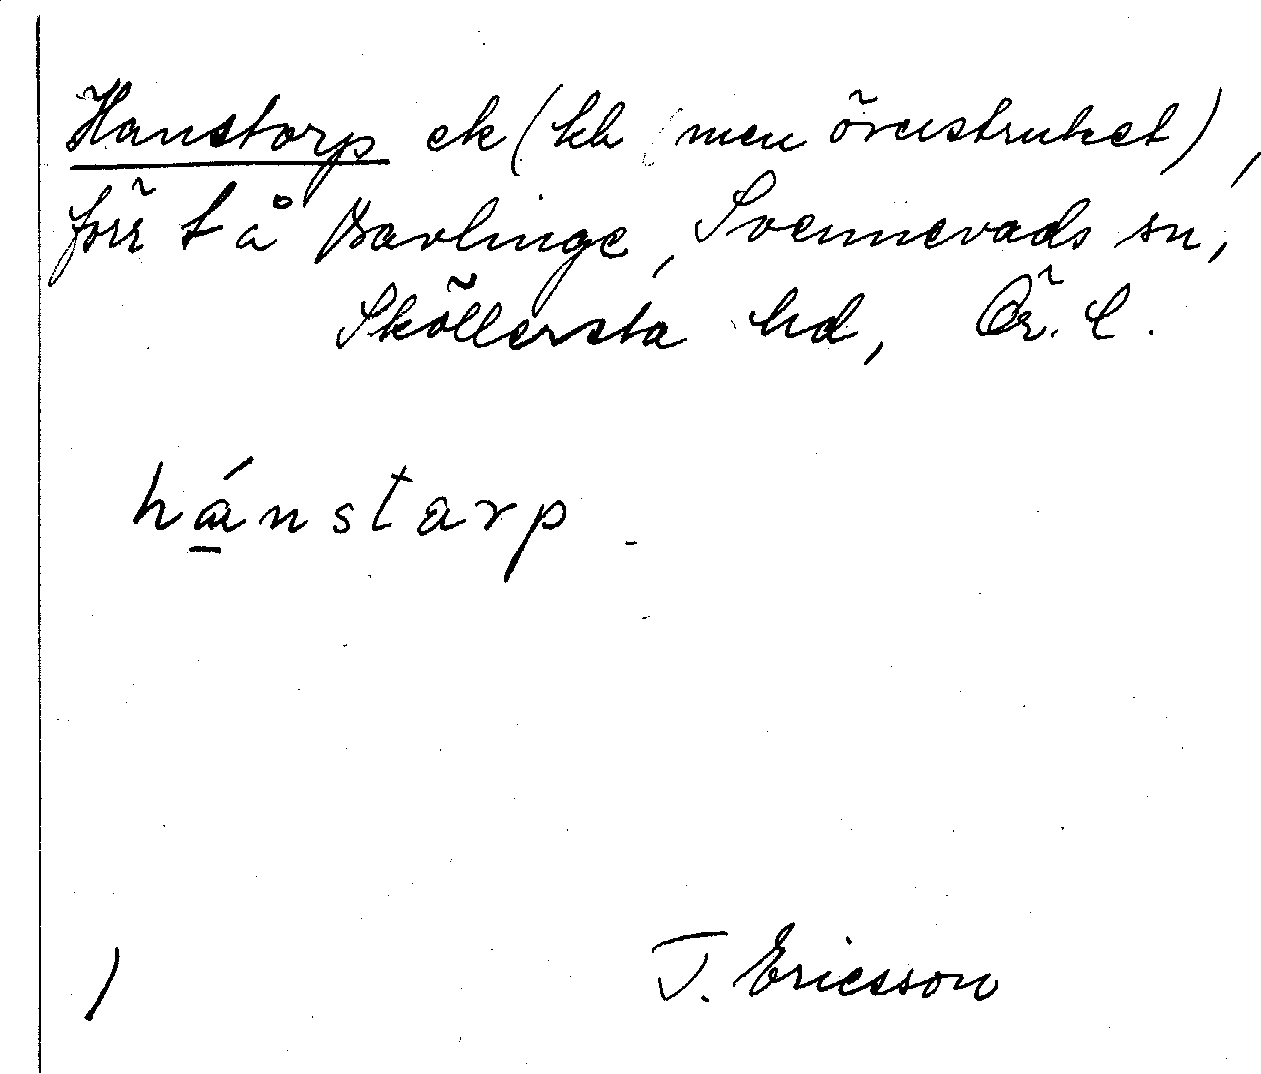 Hanstorp ek (kh men överstruket),
förr t å Bavlinge, Svennevads sn,
Sköllersta hd, Ör. l.
hánstarp
/ T. Ericsson